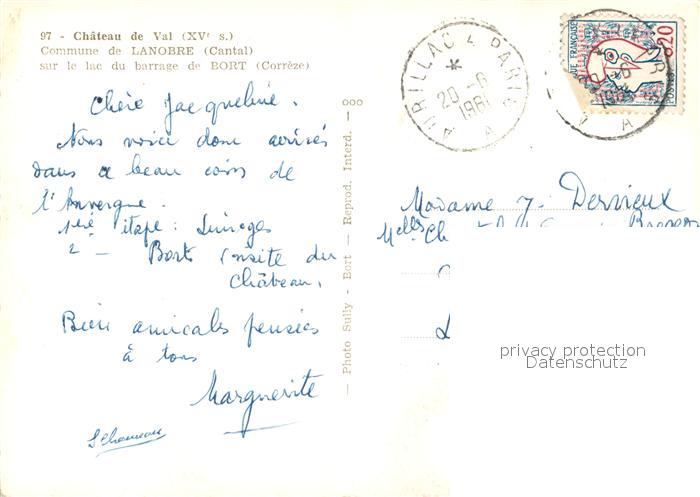 97 - Château de Val (XVe s.)
Commune de LANOBRE (Cantal)
sur le lac du barrage de BORT (Corrèze)
Chère Jacqueline.
Nous voici donc arrivés
dans ce beau coin de
l'Auvergne.
1ère étape : Limoges
2 — Bort (visite du
Château.
Bien amicales pensées
à tous
Marguerite
— Photo Sully - Bort - Reprod. Interd. — 000
AURILLAC A PARIS
20-6
A
QUE FRANÇAISE
0,20
POSTES
Madame J. Dervieux
Melles Ch
privacy protection
Datenschutz